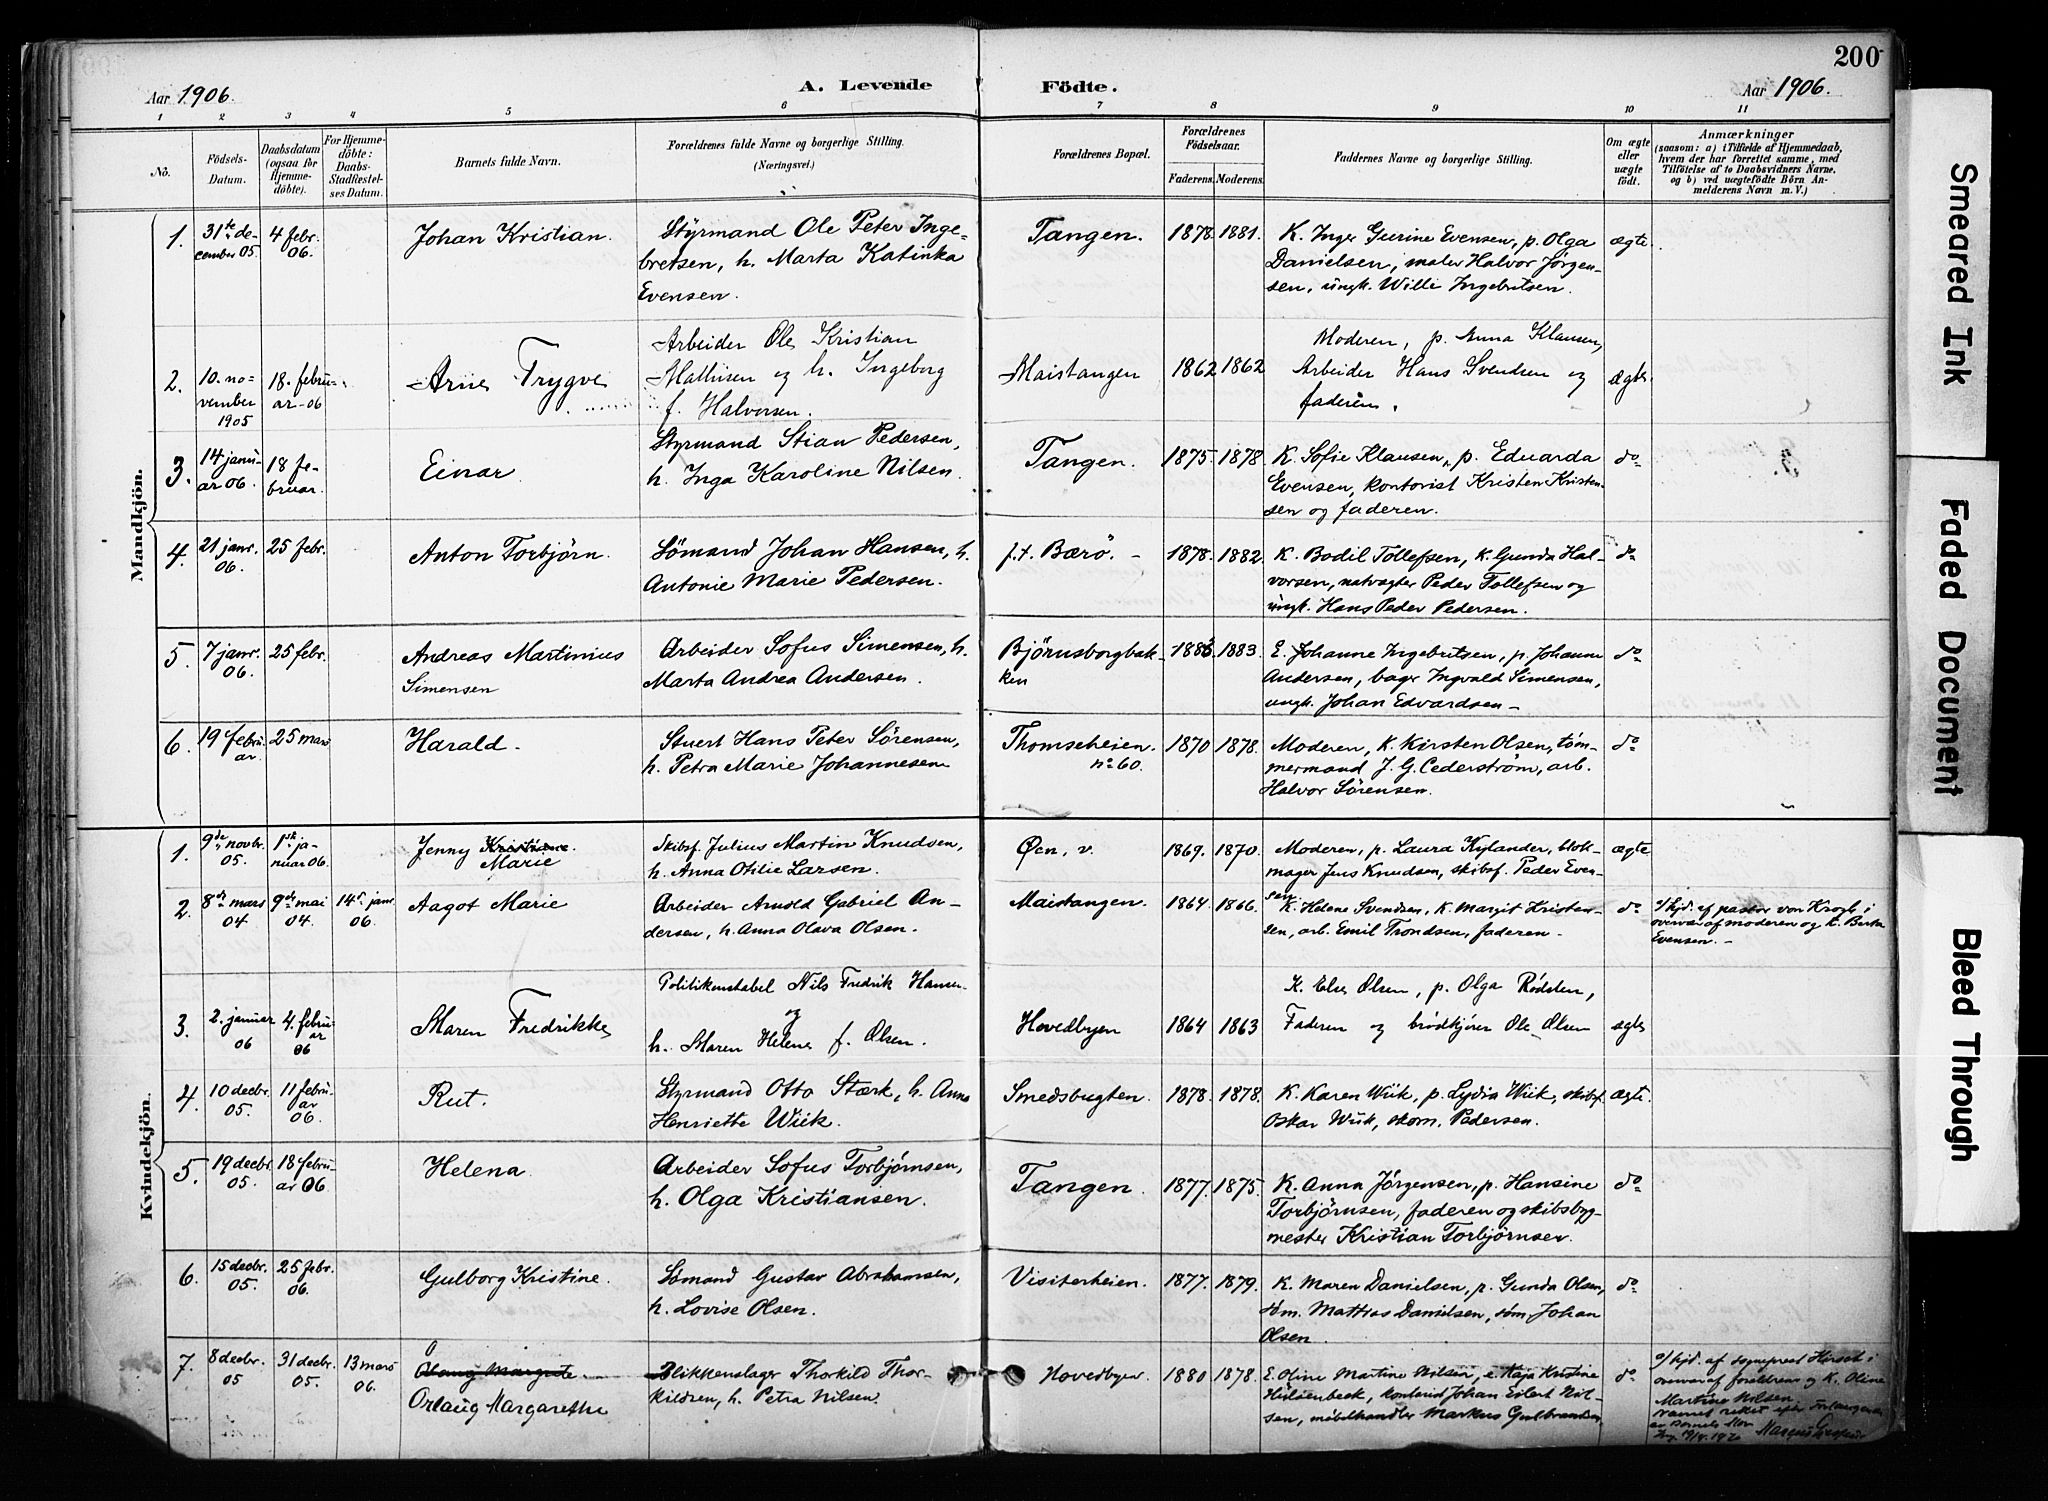 200
Aar 1906.
A. Levende Födte.
Aar 1906.
1 2 3 4 5 6 7 8 9 10 11
No.
Födsels-Datum.
Daabsdatum (ogsaa för Hjemme-döbte).
For Hjemme-döbte: Daabs-Stadfæstelses Datum.
Barnets fulde Navn.
Forældrenes fulde Navne og borgerlige Stilling.
(Næringsvei.)
Forældrenes Bopæl.
Forældrenes Födselsaar.
Faderens. Moderens.
Faddernes Navne og borgerlige Stilling.
Om ægte eller uægte födt.
Anmærkninger
(saasom: a) i Tilfælde af Hjemmedaab,
hvem der har forrettet samme, med
Tilföielse af to Daabsvidners Navne,
og b) ved uægtefödte Börn An-
melderens Navn m. V.)
Mandkjön.
1. 31te de-cember 05. 4 febr. 06. Johan Kristian. Styrmand Ole Peter Inge-
bretsen, h. Marta Katinka
Evensen.
Tangen. 1878. 1881. K. Inger Gurine Evensen, p. Olga
Danielsen, maler Halvor Jørgen-
sen, ungk. Willi Ingebritsen. ægte.
2. 10. no-vember 1905 18. febru-ar-06 Arne Trygve Arbeider Ole Kristian
Mathisen og h. Ingeborg
f. Halvorsen.
Maistangen 1862 1862 Moderen, p. Anna Klausen,
Arbeider Hans Svendsen og
faderen. ægte.
3. 14 janu-ar 06. 18 fe-bruar. Einar. Styrmand Stian Pedersen,
h. Inga Karoline Nilsen.
Tangen. 1875. 1878. K. Sofie Klausen, p. Eduarda
Evensen, kontorist Kristen Kristen-
sen og faderen. do
4. 21 janr. 06. 25 febr. Anton Torbjörn. Sömand Johan Hansen, h.
Antonie Marie Pedersen.
f.t. Bærö. - 1878. 1882. K. Bodil Tollefsen, K. Gunda Hal-
vorsen, natvægter Peder Tollefsen og
ungk. Hans Peder Pedersen. do
5. 7 janr. 06. 25 febr. Andreas Martinius
Simensen Arbeider Sofus Simensen, h.
Marta Andrea Andersen.
Björnsborgbak-
ken 1883. 1883. E. Johanne Ingebritsen, p. Johanne
Andersen, bager Ingvald Simensen,
ungk. Johan Edvardsen - do
6. 19 febru-ar. 25 mars Harald. Stuert Hans Peter Sörensen,
h. Petra Marie Johannesen
Thomseheien.
no 60. 1870 1878. Moderen, K. Kirsten Olsen, tøm-
mermand J. G. Cederström, arb.
Halvor Sörensen. do
Kvindekjön.
1. 9de novbr. 05. 1ste ja-nuar 06. Jenny Kristiane.
Marie Skibsf. Julius Martin Knudsen,
h. Anna Otilie Larsen.
Øen, v. 1869. 1870. Moderen, p. Laura Kylander, blok-
mager Jens Knudsen, skibsf. Peder Even-
sen ægte
2. 8de mars 04 9de mai 04. 14de janr 06. Aagot Marie Arbeider Arnold Gabriel An-
dersen, h. Anna Olava Olsen.
Maistangen. 1864. 1866. K. Helene Svendsen, K. Margit Kristen-
sen, arb. Emil Trondsen, faderen. do hjd. af pastor von Krogh i
overvær af moderen og K. Berta
Evensen. -
3. 2. januar 06 4. febru-ar 06 Maren Fredrikke Politikonstabel Nils Fredrik Hansen
og
h. Maren Helene f. Olsen.
Hovedbyen 1864 1863 K. Else Olsen, p. Olga Rödsten,
Faderen og brödkjører Ole Olsen ægte
4. 10 decbr. 05. 11 febru-ar 06. Rut. Styrmand Otto Stærk, h. Anna
Henriette Wiik.
Smedsbugten. 1878. 1878. K. Karen Wiik, p. Lydia Wiik, skibsf.
Oskar Wiik, skom. Pedersen. ægte.
5. 19 decbr. 05. 18 febru-ar 06. Helena. Arbeider Sofus Torbjörnsen,
h. Olga Kristiansen.
Tangen. 1877. 1875. K. Anna Jörgensen, p. Hansine
Torbjörnsen, faderen og skibsbyg-
mester Kristian Torbjörnsen. do
6. 15 decbr. 05. 25 febr. 06. Gulborg Kristine. Sömand Gustav Abrahamsen,
h. Lovise Olsen.
Visiterheien. 1877. 1879. K. Maren Danielsen, p. Gunda Olsen,
søm. Mathias Danielsen, søm Johan
Olsen. do
7. 8 decbr. 05 31 decbr. 05. 13 mars 06. Margrete
Orlaug Margarethe Blikkenslager Thorkild Thor-
kildsen, h. Petra Nilsen.
Hovedbyen 1880 1878. E. Oline Martine Nilsen, e. Kaja Kristine
kontorist Johan Eilert Nil-
sen, møbelhandler Markus Gulbrandsen do hjd. af sogneprest Hirsch i
overvær af forældrene og K. Oline
Martine Nilsen.
Navnet rettet efter
Smeared Ink
Faded Document
Bleed Through